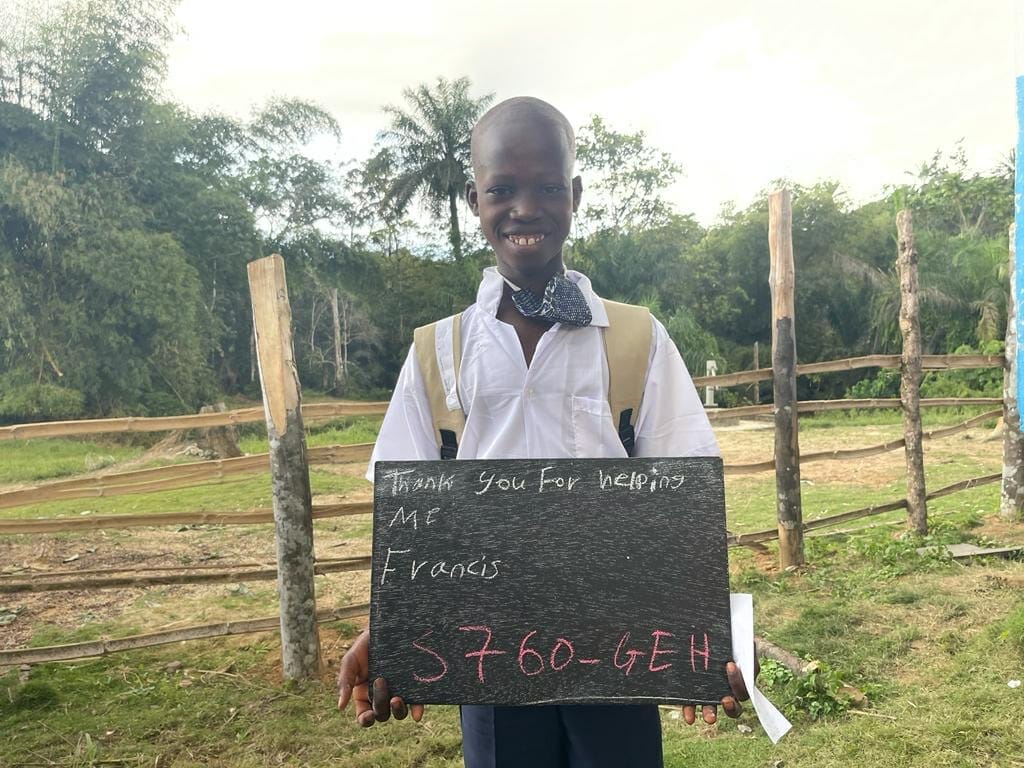 Thank you For helping
ME
Francis
S760-GEH